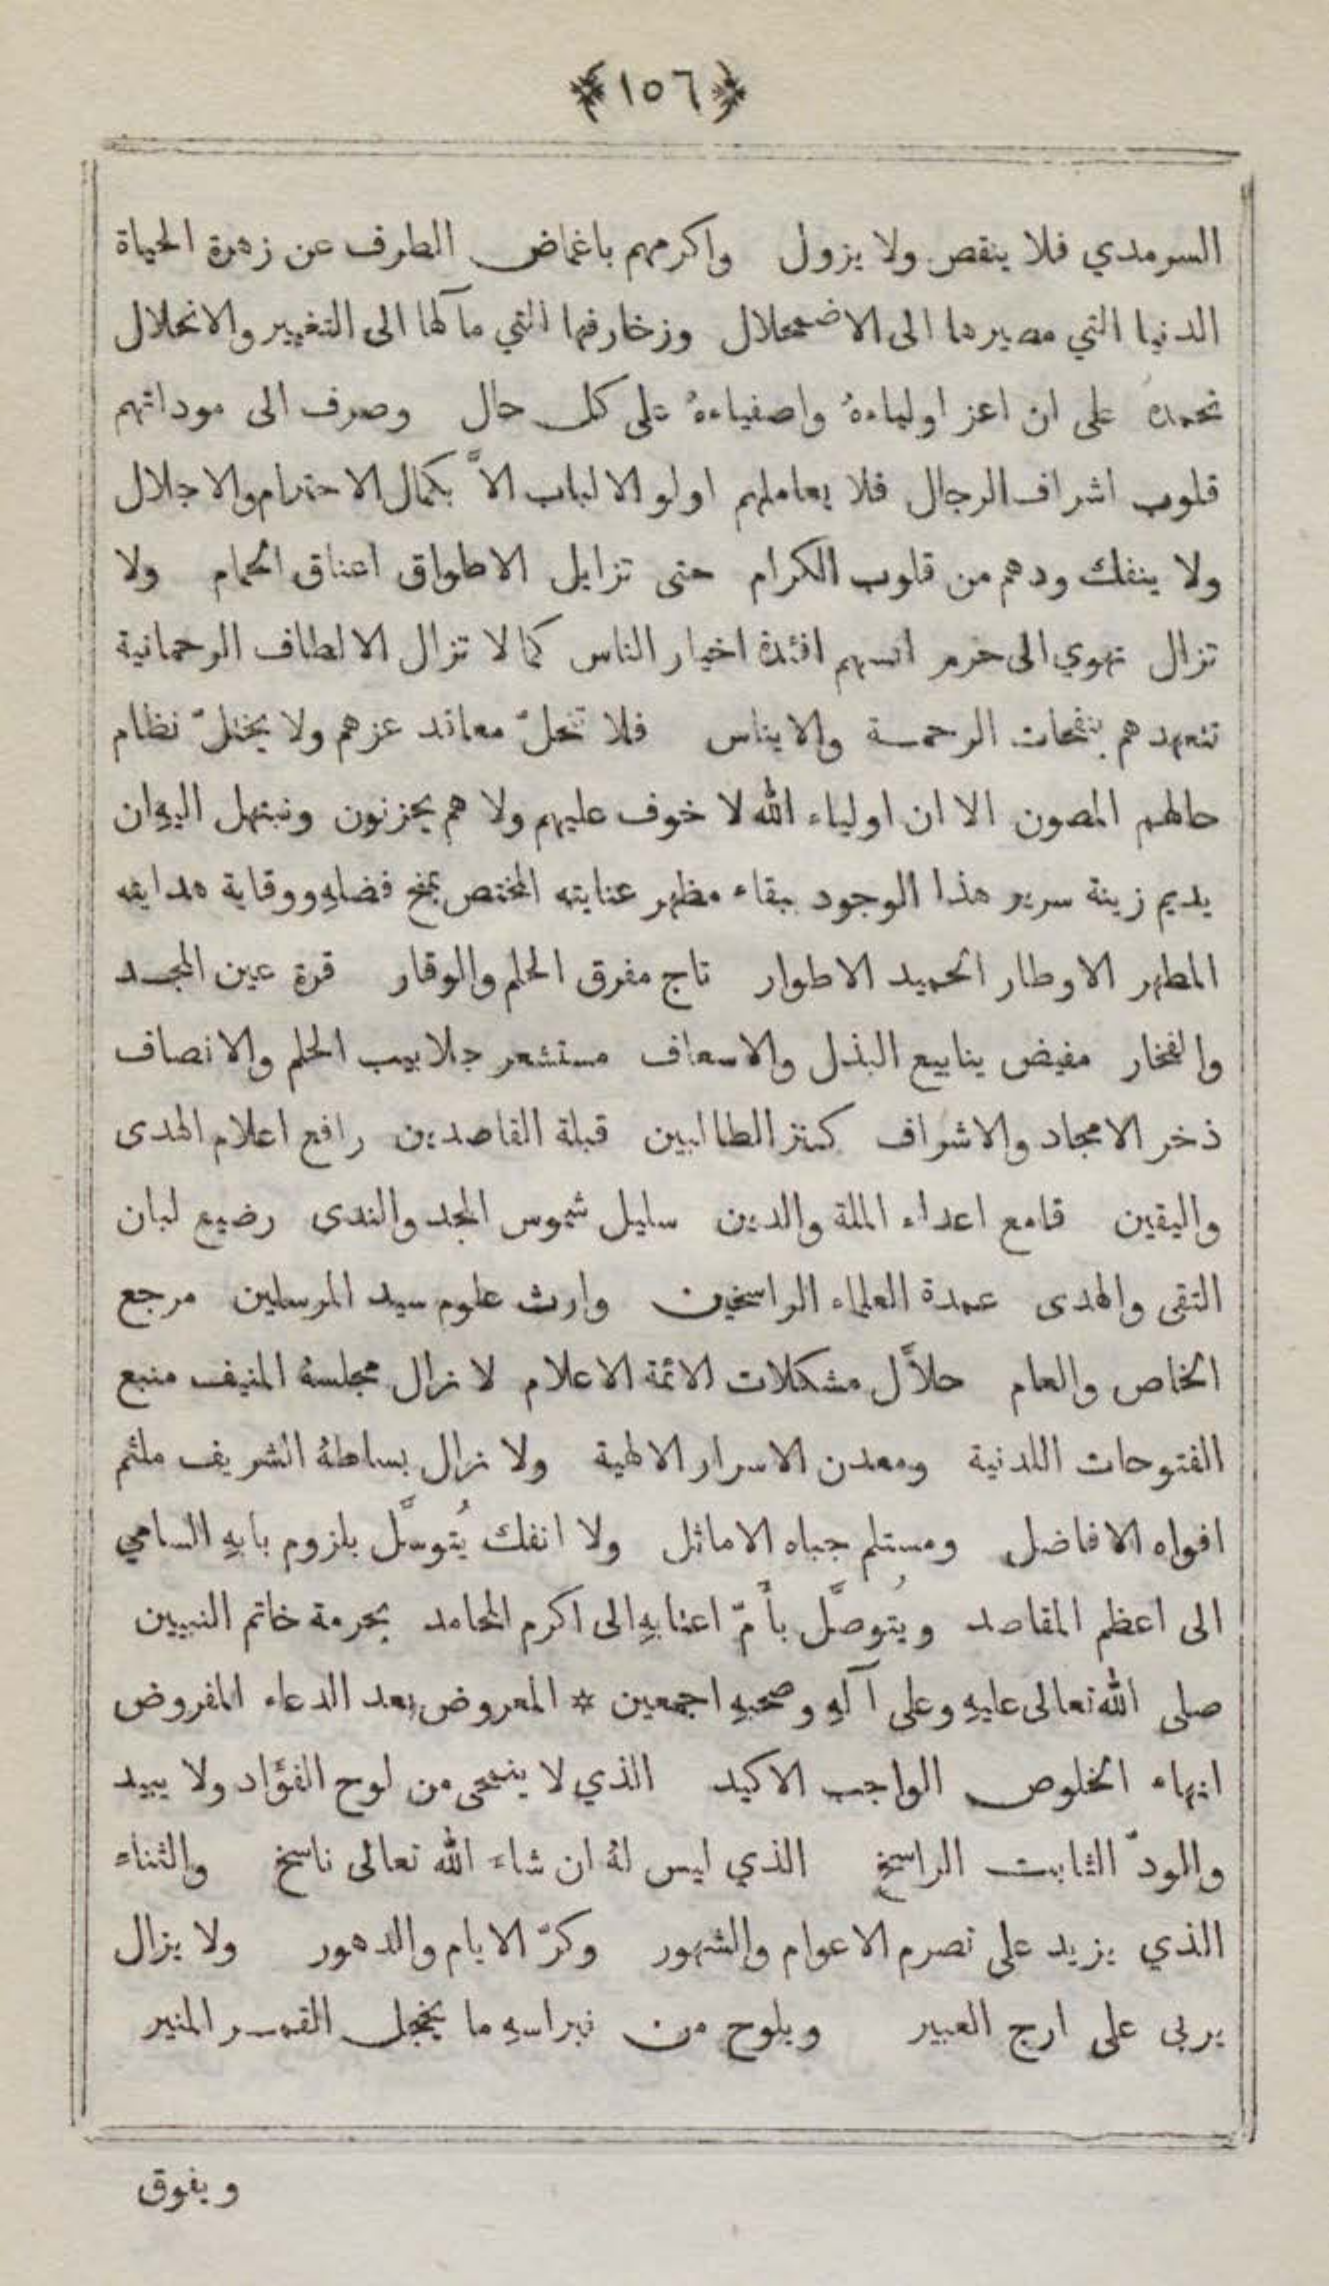 ﴿١٥٦﴾
السرمدي فلا ينقص ولا يزول واكرمهم باغماض الطرف عن زهرة الحياة
الدنيا التي مصيرها الى الاضمحلال وزخارفها التي مآلها الى التغيير والانحلال
نحمدهُ على ان اعز اولياءهُ واصفياءهُ على كل حال وصرف الى موداتهم
قلوب اشراف الرجال فلا يعاملهم اولو الالباب الاَّ بكمال الاحترام والاجلال
ولا ينفك ودهم من قلوب الكرام حتى تزايل الاطواق اعناق الحمام ولا
تزال تهوي الى حرم انسهم افئدة اخيار الناس كما لا تزال الالطاف الرحمانية
تتعهدهم بنفحات الرحمة والايناس فلا تنحلّ معاقد عزهم ولا يختلّ نظام
حالهم المصون الا ان اولياء الله لا خوف عليهم ولا هم يحزنون ونبتهل اليهِ ان
يديم زينة سرير هذا الوجود ببقاء مظهر عنايته المختص بمنح فضلهِ ووقاية هدايته
المطهر الاوطار الحميد الاطوار تاج مفرق الحلم والوقار قرة عين المجد
والفخار مفيض ينابيع البذل والاسعاف مستشعر جلابيب الحلم والانصاف
ذخر الامجاد والاشراف كنز الطالبين قبلة القاصدين رافع اعلام الهدى
واليقين قامع اعداء الملة والدين سليل شموس المجد والندى رضيع لبان
التقى والهدى عمدة العلماء الراسخين وارث علوم سيد المرسلين مرجع
الخاص والعام حلاَّل مشكلات الائمة الاعلام لا زال مجلسهُ المنيف منبع
الفتوحات اللدنية ومعدن الاسرار الالهية ولا زال بساطهُ الشريف ملثم
افواه الافاضل ومستلم جباه الاماثل ولا انفك يُتوسَّل بلزوم بابهِ السامي
الى اعظم المقاصد ويُتوصَّل بأَمّ اعتابهِ الى اكرم المحامد بحرمة خاتم النبيين
صلى الله تعالى عليهِ وعلى آلهِ وصحبهِ اجمعين * المعروض بعد الدعاء المفروض
انهاء الخلوص الواجب الاكيد الذي لا ينمحى من لوح الفؤاد ولا يبيد
والودّ الثابت الراسخ الذي ليس لهُ ان شاء الله تعالى ناسخ والثناء
الذي يزيد على تصرم الاعوام والشهور وكرّ الايام والدهور ولا يزال
يربى على ارج العبير ويلوح من نبراسهِ ما يخجل القمر المنير
ويفوق